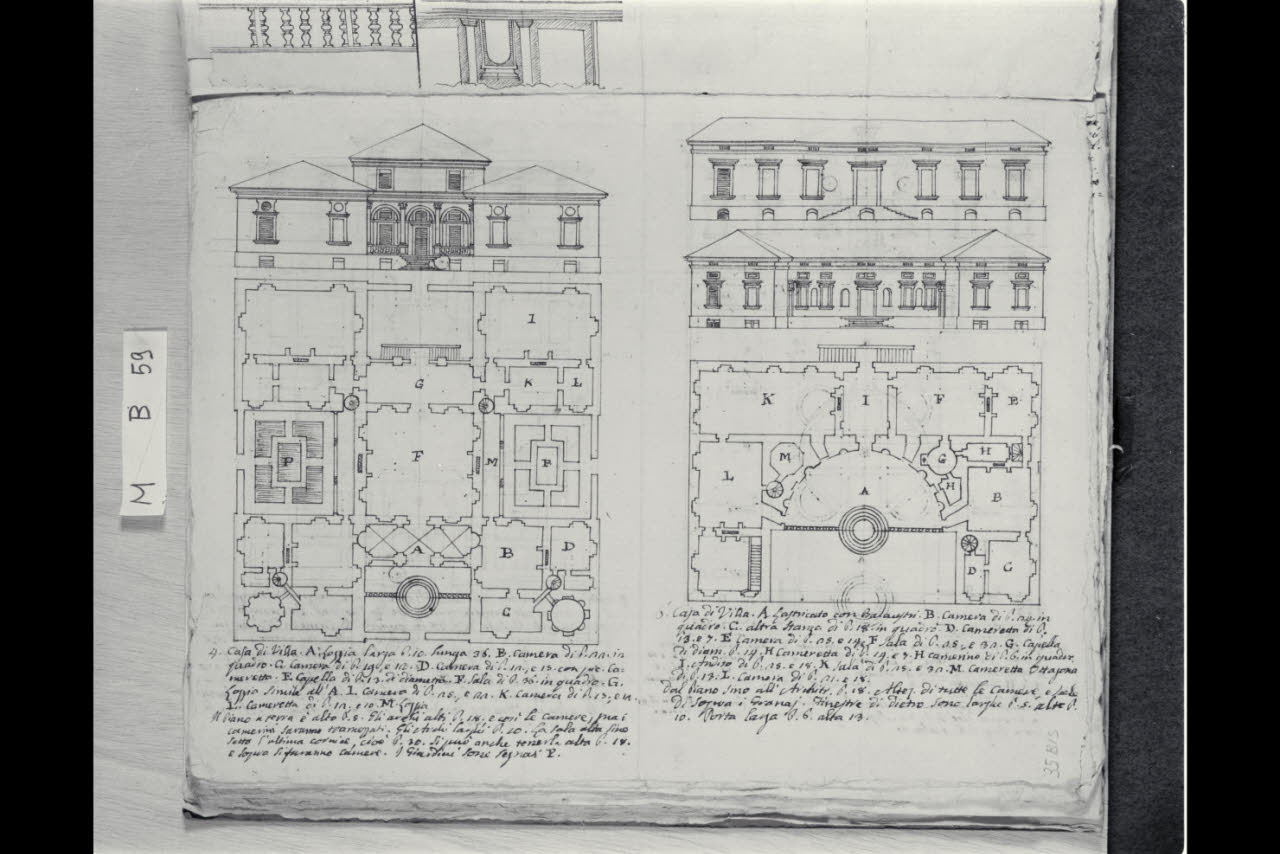 M B 59
I
G
K
L
P
F
M
P
A
B
D
C
4. Casa di Villa. A. Loggia larga p. 10. lunga 36. B. Camera di p. in
quadro. C. Camera di p. 19, e 12. D. Camera di p. 12, e 15. con
E. Capella di p. 13. di diametro. F. Sala di p. 36. in quadro. G.
Loggia simile all'A. I. Camera di p. 25, e K. Camera di p. 17, e
L. Cameretta di p. 12, e 10. M. Loggia
Il piano a terra è alto p. 8. Gli archi alti p. 18. e così le camere, ma i
camerini saranno tramezati. Gli archi larghi p. 10. La sala alta sino
sotto l'ultima cornice, cioè p. 30. Si può anche tenerla alta p. 18.
e sopra si faranno camere. I Giardini sono segnati P.
K
I
F
E
L
M
G
H
H
B
A
D
C
5. Casa di Villa. A. Lastricato con Balaustri. B. Camera di p. in
quadro. C. altra stanza di p. 18. in quadro. D. Cameretta di p.
13. e 7. E. Camera di p. 25. e 19. F. Sala di p. 25. e 32. G. Capella
di diam. p. 14. H. Cameretta di p. 14. e 7. H. camerino di p. 6. in quadro.
I. Andito di p. 25. e 18. K. Sala di p. 25. e 32. M. Cameretta Ottagona
di p. 13. L. Camera di p. 31. e 18.
Dal piano sino all'Archit. p. 18. e Altez. di tutte le Camere, e sale
di sopra i Granaj. Finestre di dietro sono larghe p. 5. alte p.
10. Porta larga p. 6. alta 13.
35 BIS